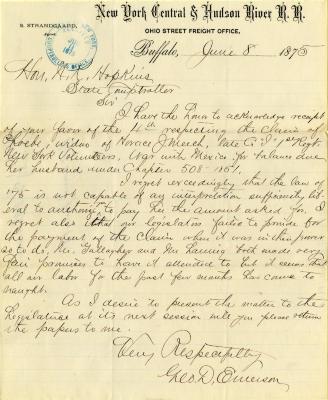 New York Central & Hudson River R. R.
S. STRANDGAARD,
OHIO STREET FREIGHT OFFICE,
Buffalo, June 8 1875
Hon. Hopkins
State Comptroller
Sir
I have the honor to acknowledge receipt
of your favor of the 4th respecting the claim of
Phoebe, widow of Horace J. Meech, late Co. 1st Regt.
New York Volunteers, War with Mexico for balance due
her husband under Chapter 508-1851.
I regret exceedingly that the law of
is not capable of an interpretation sufficiently lib-
eral to authorize to pay her the amount asked for. I
regret also that our legislature failed to provide for
the payment of the claim when it was in their power
so to do. Mr. Gallagher and Mr. Lansing both made very
fair promises to have it attended to but it seems that
all our labor for the past few months has come to
naught.
As I desire to present the matter to the
Legislature at its next session will you please return
the papers to me.
Very Respectfully
Geo. D. Emerson